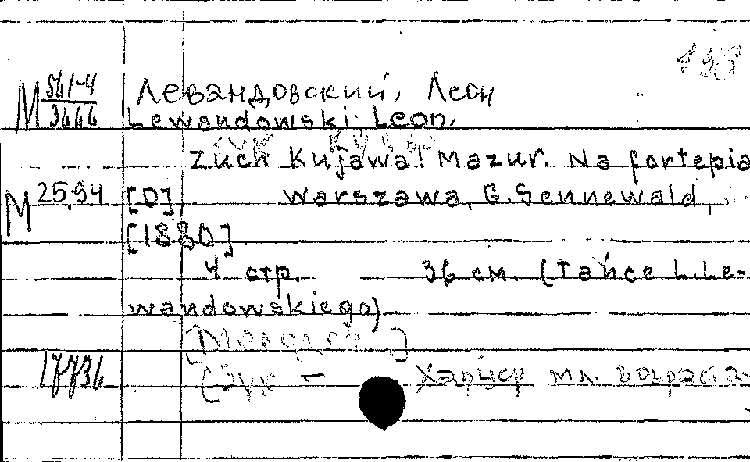 М 561-4/3666 Левандовский, Леон
Lewandowski Leon.
Zuch Kujawa! Mazur. Na fortepia
М 25.94 [D] Warszawa, G. Sennewald,
[1880]
4 стр. 36 см. (Tańce L. Le-
wandowskiego)
17736